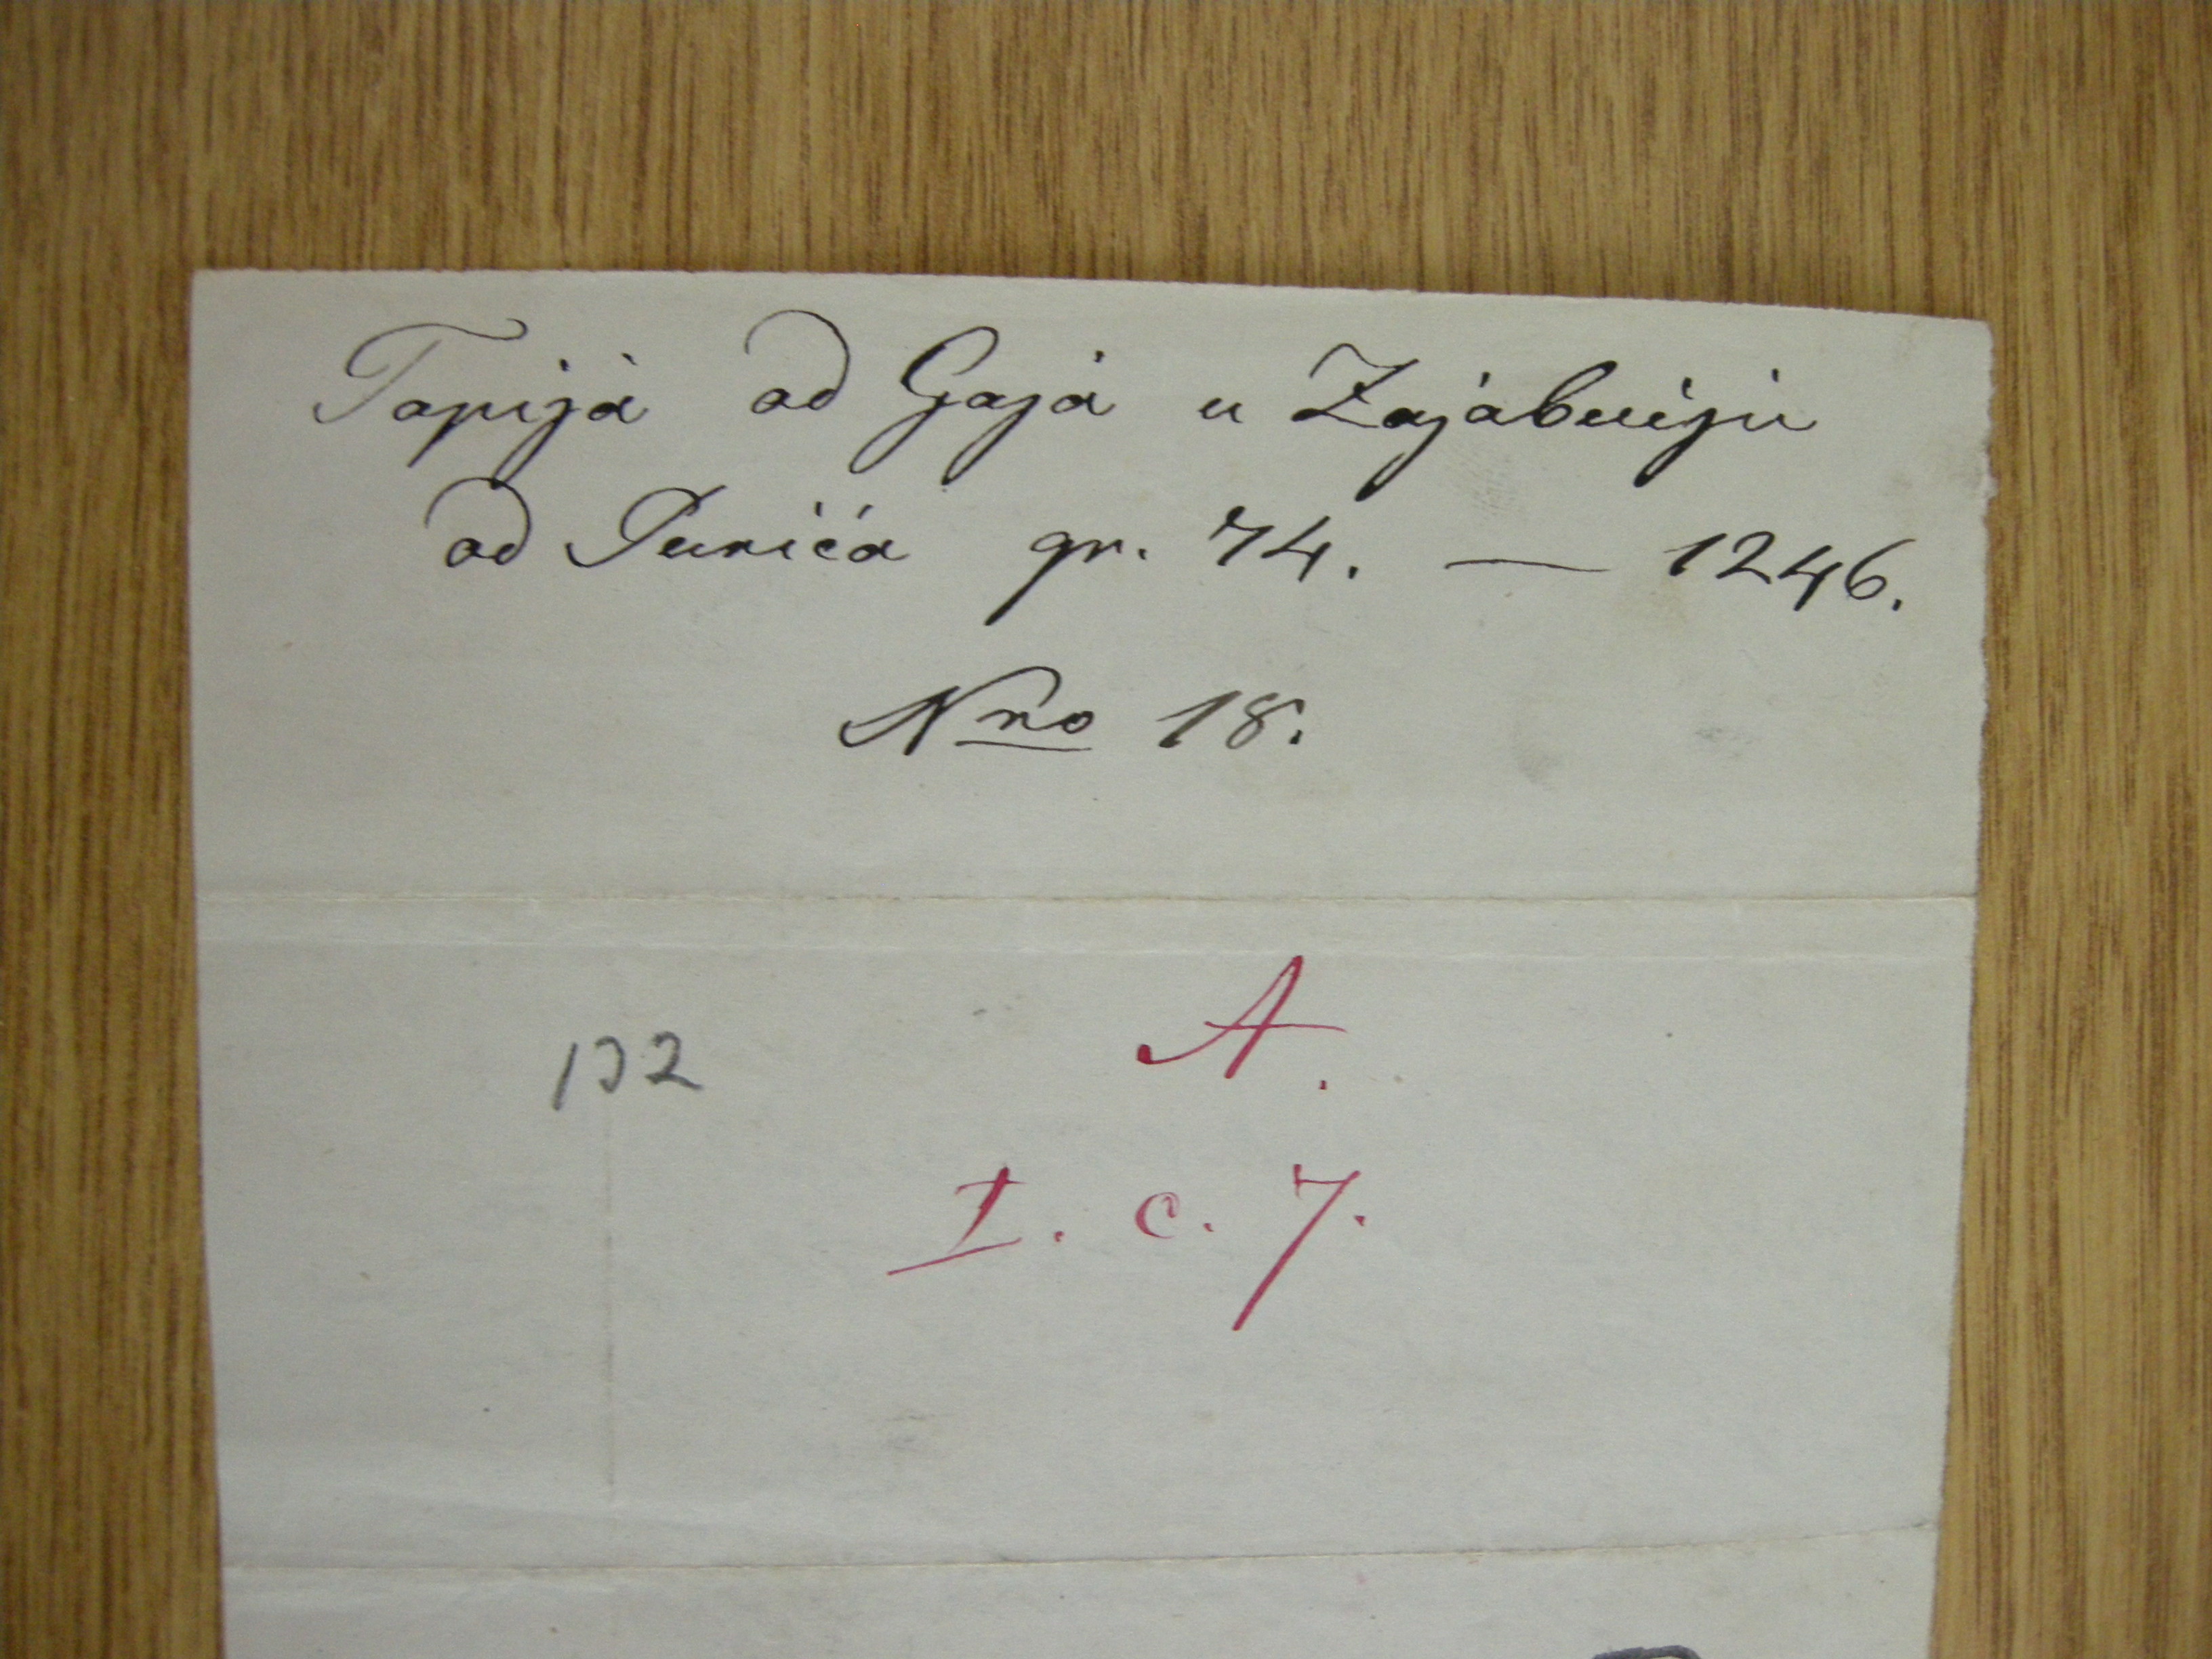 Tapija od Gaja u Zajabučju
od Sunića gr. 74. — 1246.
Nro 18.
132
A.
I. c. 7.